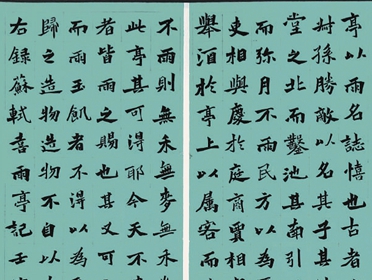 亭以雨名誌憙也古者
叔孫勝敵以名其子其
堂之北而鑿池其南引
而弥月不雨民方以為
吏相與慶於庭商賈相
舉酒於亭上以属客而
不雨則無禾無麥無禾
此亭其可得耶今天不
者皆雨之賜也其又可
而雨玉飢者不得以為
歸之造物造物不自以
右錄蘇軾喜雨亭記壬